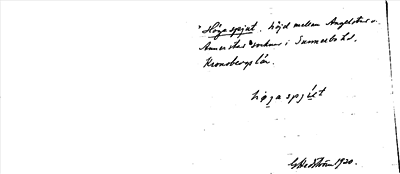 Höga spjut, höjd mellan Angelstad o.
Annerstad socknar i Sunnerbo hd.
Kronobergs län.
höga spjut
G Hedström 1920.